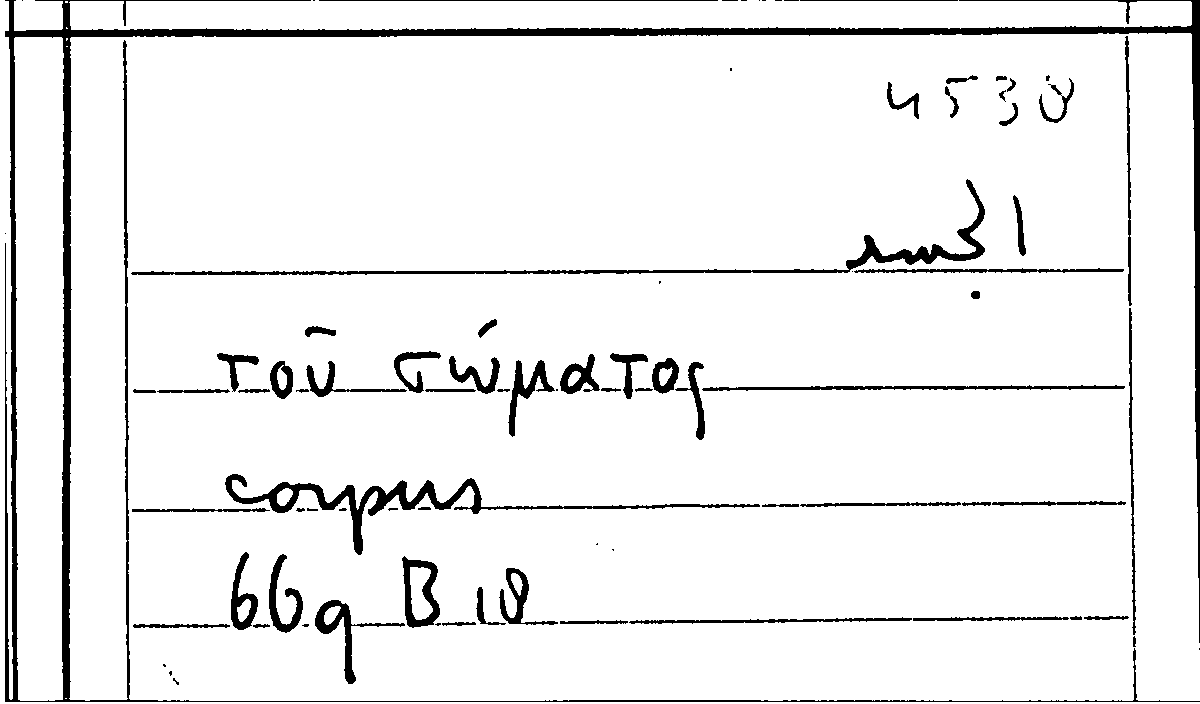 4538
الجسم
τοῦ σώματος
corpus
669 B 18